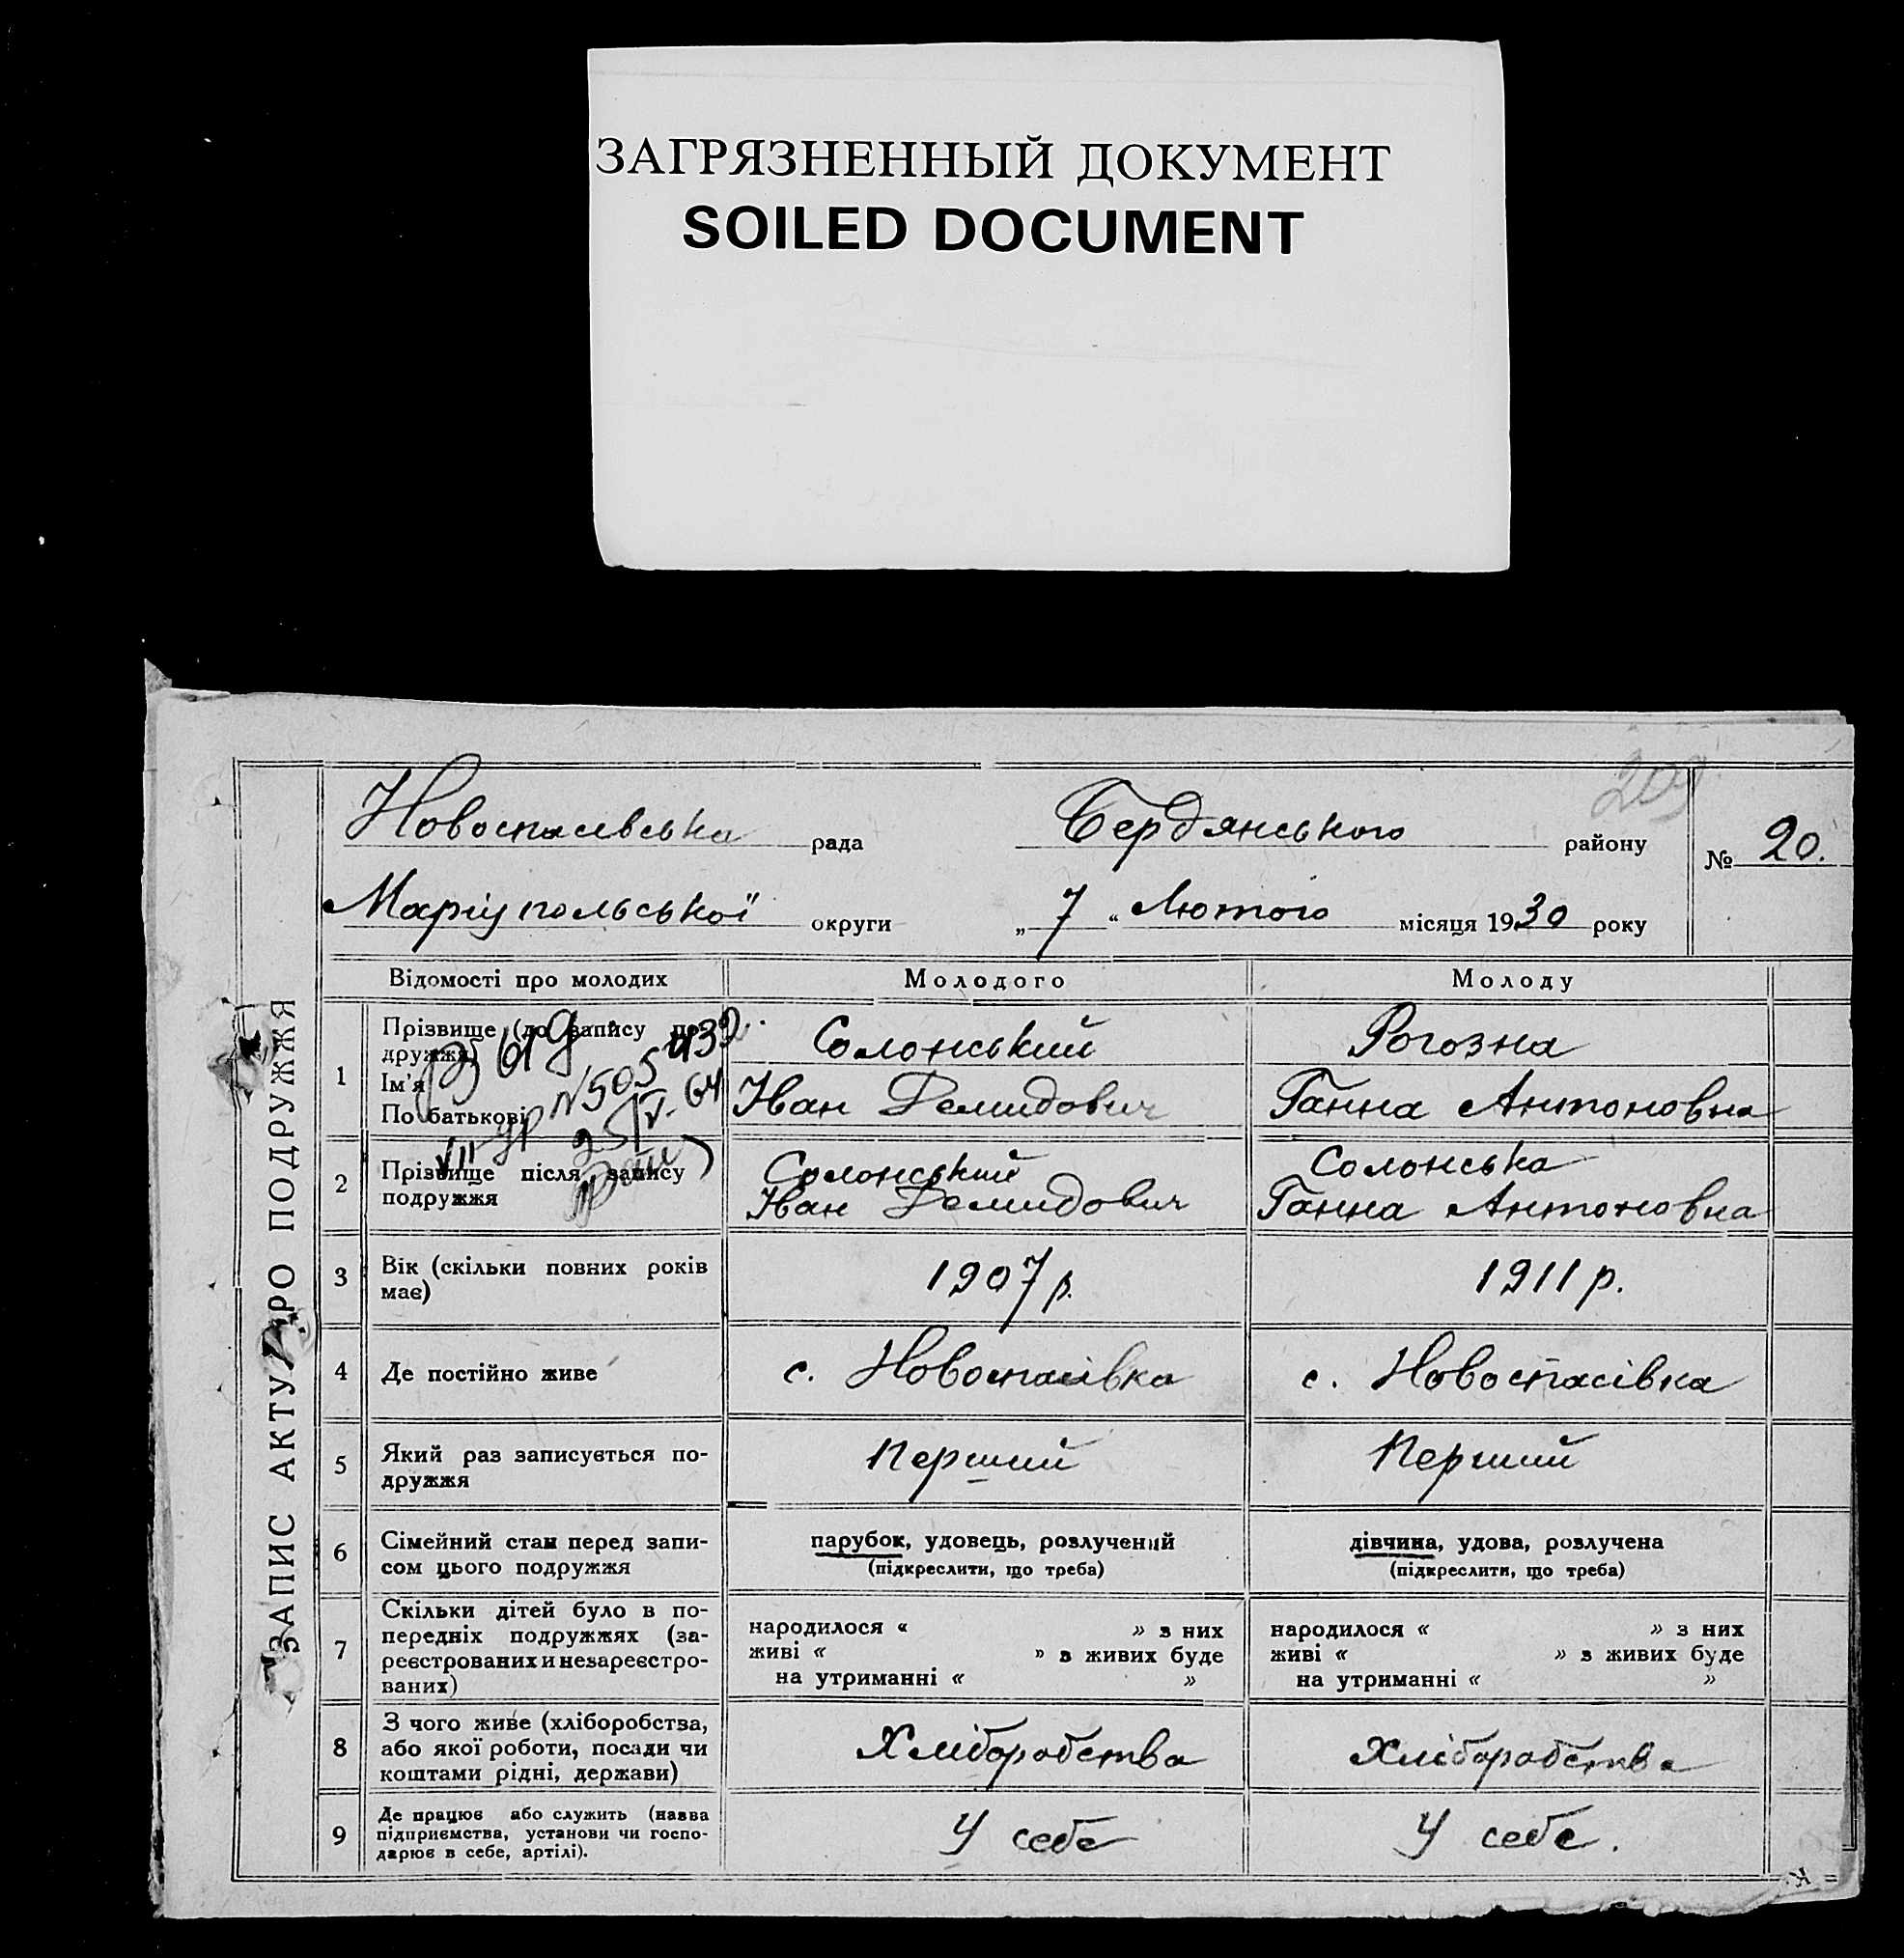 ЗАГРЯЗНЕННЫЙ ДОКУМЕНТ
SOILED DOCUMENT
209
Новоспасівська рада Бердянського району № 20.
Маріупольської округи „7“ Лютого місяця 1930 року
ЗАПИС АКТУ ПРО ПОДРУЖЖЯ
Відомості про молодих Молодого Молоду
1 Прізвище (до запису по-
дружжя)
Ім'я
По батькові
Солонський Рогозна
Іван Демидович Ганна Антоновна
N 505
25/V-64
VII
2 Прізвище після запису
подружжя
Солонський Солонська
Іван Демидович Ганна Антоновна
3 Вік (скільки повних років
має)
1907 р. 1911 р.
4 Де постійно живе с. Новоспасівка с. Новоспасівка
5 Який раз записується по-
дружжя
Перший Перший
6 Сімейний стан перед запи-
сом цього подружжя
парубок, удовець, розлучений дівчина, удова, розлучена
(підкреслити, що треба) (підкреслити, що треба)
7 Скільки дітей було в по-
передніх подружжях (за-
реєстрованих и незареєстро-
ваних)
народилося « » з них народилося « » з них
живі « » з живих буде живі « » з живих буде
на утриманні « » на утриманні « »
8 З чого живе (хліборобства,
або якої роботи, посади чи
коштами рідні, держави)
Хліборобства Хліборобства
9 Де працює або служить (назва
підприємства, установи чи госпо-
дарює в себе, артілі).
У себе У себе.